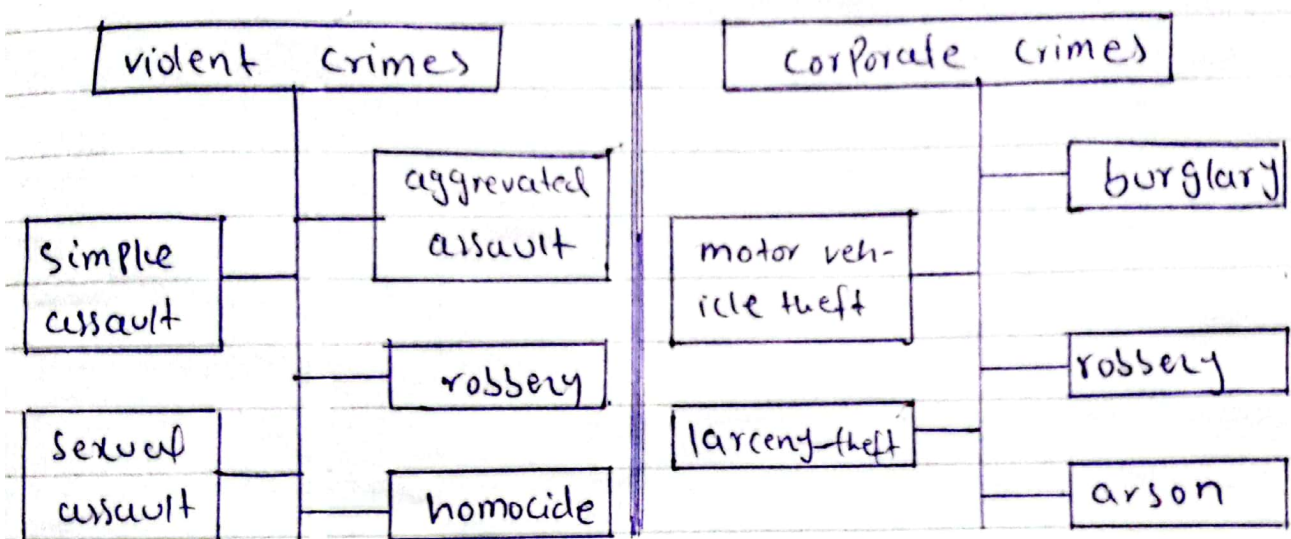 violent crimes
aggrevated
assault
simple
assault
robbery
sexual
assault
homocide
corporate crimes
burglary
motor veh-
icle theft
robbery
larceny-theft
arson